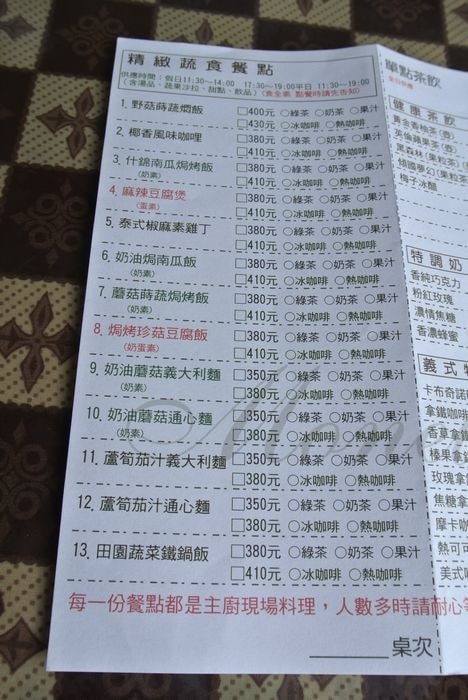 精緻蔬食餐點
供應時間：假日11:30~14:00 17:30~19:00平日 11:30~19:00
(含湯品、蔬果沙拉、甜點、飲品) (食全素 點餐時請先告知)
1. 野菇蒔蔬燜飯 □400元 ○綠茶 ○奶茶 ○果汁
□430元 ○冰咖啡 ○熱咖啡
2. 椰香風味咖哩 □380元 ○綠茶 ○奶茶 ○果汁
□410元 ○冰咖啡 ○熱咖啡
3. 什錦南瓜焗烤飯 □380元 ○綠茶 ○奶茶 ○果汁
(奶素) □410元 ○冰咖啡 ○熱咖啡
4. 麻辣豆腐煲 □380元 ○綠茶 ○奶茶 ○果汁
(蛋素) □410元 ○冰咖啡 ○熱咖啡
5. 泰式椒麻素雞丁 □380元 ○綠茶 ○奶茶 ○果汁
□410元 ○冰咖啡 ○熱咖啡
6. 奶油焗南瓜飯 □380元 ○綠茶 ○奶茶 ○果汁
(奶素) □410元 ○冰咖啡 ○熱咖啡
7. 蘑菇蒔蔬焗烤飯 □380元 ○綠茶 ○奶茶 ○果汁
(奶素) □410元 ○冰咖啡 ○熱咖啡
8. 焗烤珍菇豆腐飯 □380元 ○綠茶 ○奶茶 ○果汁
(奶蛋素) □410元 ○冰咖啡 ○熱咖啡
9. 奶油蘑菇義大利麵 □350元 ○綠茶 ○奶茶 ○果汁
(奶素) □380元 ○冰咖啡 ○熱咖啡
10. 奶油蘑菇通心麵 □350元 ○綠茶 ○奶茶 ○果汁
(奶素) □380元 ○冰咖啡 ○熱咖啡
11. 蘆筍茄汁義大利麵 □350元 ○綠茶 ○奶茶 ○果汁
□380元 ○冰咖啡 ○熱咖啡
12. 蘆筍茄汁通心麵 □350元 ○綠茶 ○奶茶 ○果汁
□380元 ○冰咖啡 ○熱咖啡
13. 田園蔬菜鐵鍋飯 □380元 ○綠茶 ○奶茶 ○果汁
□410元 ○冰咖啡 ○熱咖啡
每一份餐點都是主廚現場料理，人數多時請耐心等
桌次
單點茶飲
健康茶飲
黃金香柚茶(壺)
英倫蘋果茶(壺)
黑森林(果粒茶)(
傾國夢幻(果粒茶)
梅子冰醋
特調奶
香純巧克力
粉紅玫瑰
濃情焦糖
香濃蜂蜜
義式特
卡布奇諾
拿鐵咖啡
香草拿鐵
榛果拿鐵
玫瑰拿鐵
焦糖拿
摩卡咖
熱可可
美式咖